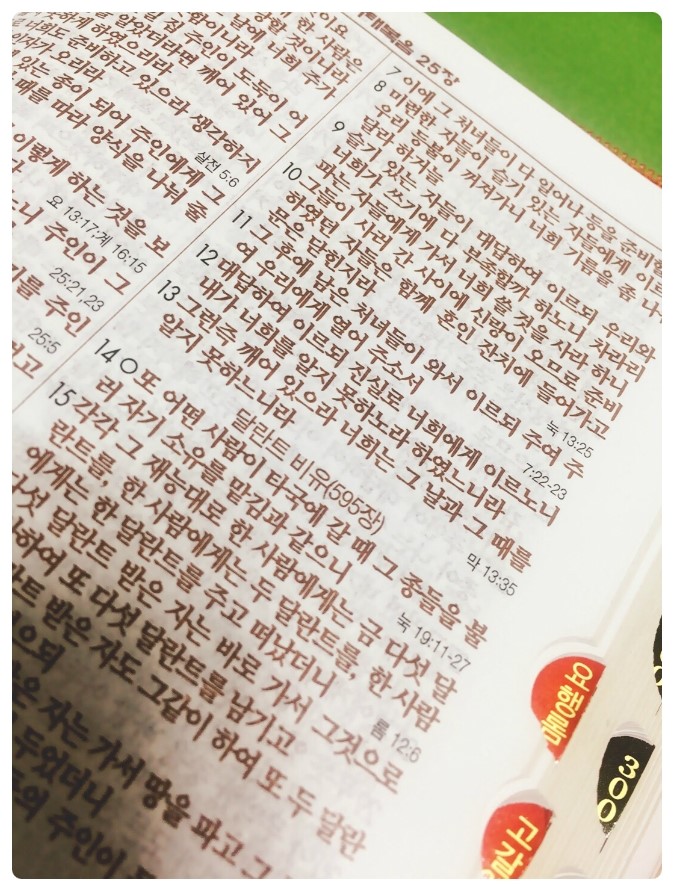 태복음 25장
한 사람은
너희 주가
집 주인이 도둑이 어
았더라면 깨어 있어 그
하게 하였으리라
너희도 준비하고 있으라 생각하지
인자가 오리라
있는 종이 되어 주인에게 그
때를 따라 양식을 나눠 줄
살전 5:6
이렇게 하는 것을 보
요 13:17;계 16:15
니 주인이 그
25:21,23
를 주인
25:5
7 이에 그 처녀들이 다 일어나 등을 준비할
8 미련한 자들이 슬기 있는 자들에게 이르
우리 등불이 꺼져가니 너희 기름을 좀 나
달라 하거늘
9 슬기 있는 자들이 대답하여 이르되 우리와
너희가 쓰기에 다 부족할까 하노니 차라리
파는 자들에게 가서 너희 쓸 것을 사라 하니
10 그들이 사러 간 사이에 신랑이 오므로 준비
하였던 자들은 함께 혼인 잔치에 들어가고
문은 닫힌지라
눅 13:25
11 그 후에 남은 처녀들이 와서 이르되 주여 주
여 우리에게 열어 주소서
7:22-23
12 대답하여 이르되 진실로 너희에게 이르노니
내가 너희를 알지 못하노라 하였느니라
13 그런즉 깨어 있으라 너희는 그 날과 그 때를
알지 못하느니라
막 13:35
달란트 비유(595장)
14 ○또 어떤 사람이 타국에 갈 때 그 종들을 불
러 자기 소유를 맡김과 같으니
눅 19:11-27
15 각각 그 재능대로 한 사람에게는 금 다섯 달
란트를, 한 사람에게는 두 달란트를, 한 사람
에게는 한 달란트를 주고 떠났더니
롬 12:6
다섯 달란트 받은 자는 바로 가서 그것으로
하여 또 다섯 달란트를 남기고
트 받은 자도 그같이 하여 또 두 달란
으되
은 자는 가서 땅을 파고 그
두었더니
의 주인이
요한